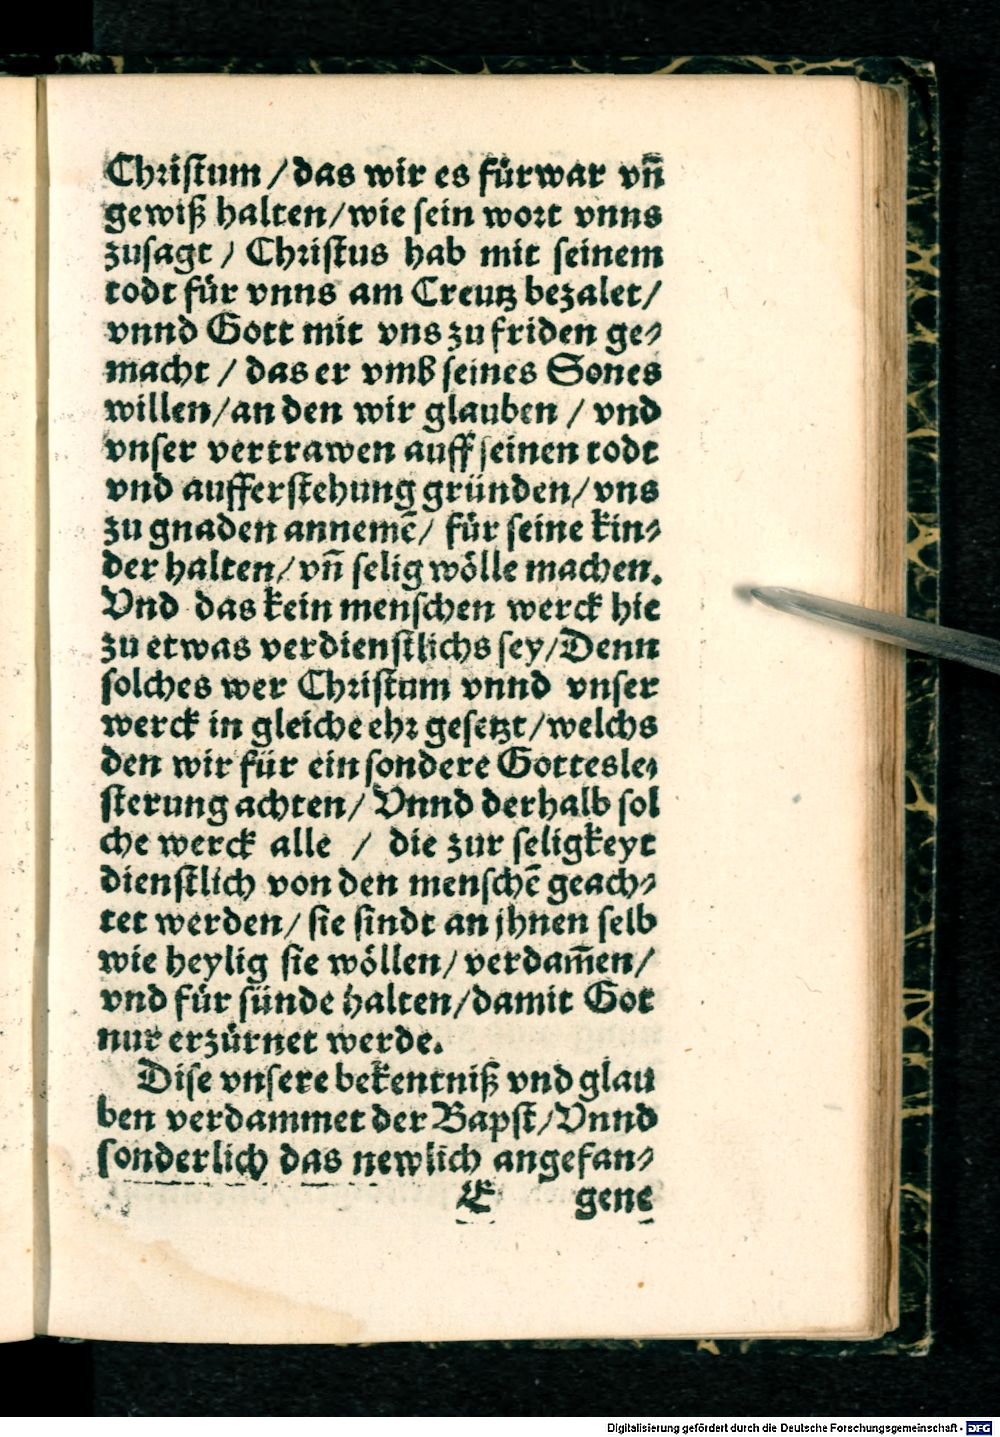 Christum / das wir es fürwar vñ
gewiß halten/wie sein wort vnns
zusagt / Christus hab mit seinem
todt für vnns am Creutz bezalet/
vnnd Gott mit vns zu friden ge-
macht / das er vmb seines Sones
willen/an den wir glauben / vnd
vnser vertrawen auff seinen todt
vnd aufferstehung gründen/vns
zu gnaden annemē/ für seine kin-
der halten/vñ selig wölle machen.
Vnd das kein menschen werck hie
zu etwas verdienstlichs sey/Denn
solches wer Christum vnnd vnser
werck in gleiche ehr gesetzt/welchs
den wir für ein sondere Gottesle-
sterung achten/ Vnnd derhalb sol
che werck alle / die zur seligkeyt
dienstlich von den menschē geach-
tet werden/ sie sindt an jhnen selb
wie heylig sie wöllen/ verdam̄en/
vnd für sünde halten/damit Got
nur erzürnet werde.
Dise vnsere bekentniß vnd glau
ben verdammet der Bapst/Vnnd
sonderlich das newlich angefan-
E gene
Digitalisierung gefördert durch die Deutsche Forschungsgemeinschaft - DFG